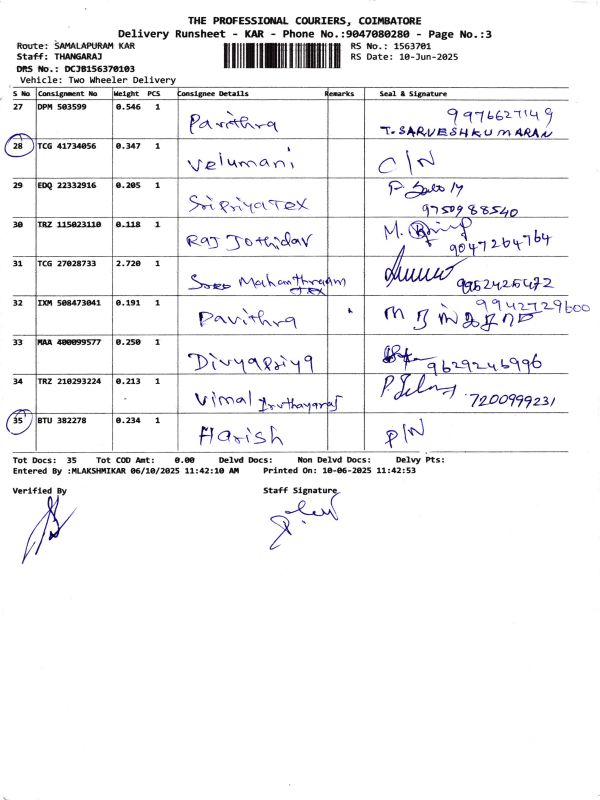 THE PROFESSIONAL COURIERS, COIMBATORE
Delivery Runsheet - KAR - Phone No.:9047080280 - Page No.:3
Route: SAMALAPURAM KAR RS No.: 1563701
Staff: THANGARAJ RS Date: 10-Jun-2025
DRS No.: DCJB156370103
Vehicle: Two Wheeler Delivery
S No Consignment No Weight PCS Consignee Details Remarks Seal & Signature
27 DPM 503599 0.546 1 Pavithra 9976627149
T. SARVESHKUMARAN
28 TCG 41734056 0.347 1 Velumani C/N
29 EDQ 22332916 0.205 1 SriPriyaTex
9750988540
30 TRZ 115023110 0.118 1 Raj Jothidar M.
9047264764
31 TCG 27028733 2.720 1 Sree Mahanthraam 9952425472
Tex
32 IXM 508473041 0.191 1 Pavithra 9942729600
33 MAA 400099577 0.250 1 Divyapriya 9629246996
34 TRZ 210293224 0.213 1 Vimal Iruthayaraj 7200999231
35 BTU 382278 0.234 1 Harish P/N
Tot Docs: 35 Tot COD Amt: 0.00 Delvd Docs: Non Delvd Docs: Delvy Pts:
Entered By :MLAKSHMIKAR 06/10/2025 11:42:10 AM Printed On: 10-06-2025 11:42:53
Verified By Staff Signature